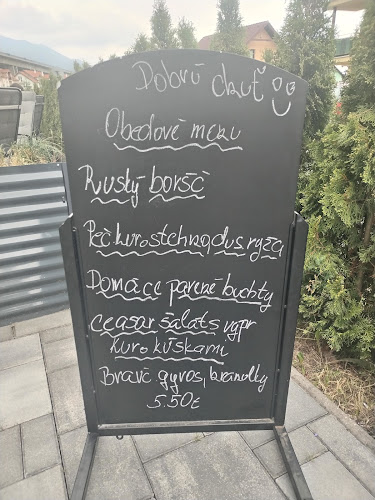 Dobrú chuť
Obedové menu
Ruský boršč
Peč kuro stehno, dus. ryža
Domáce parené buchty
ceasar šalát s vypr
kuro kúskami
Bravč gyros, hranolky
5.50€